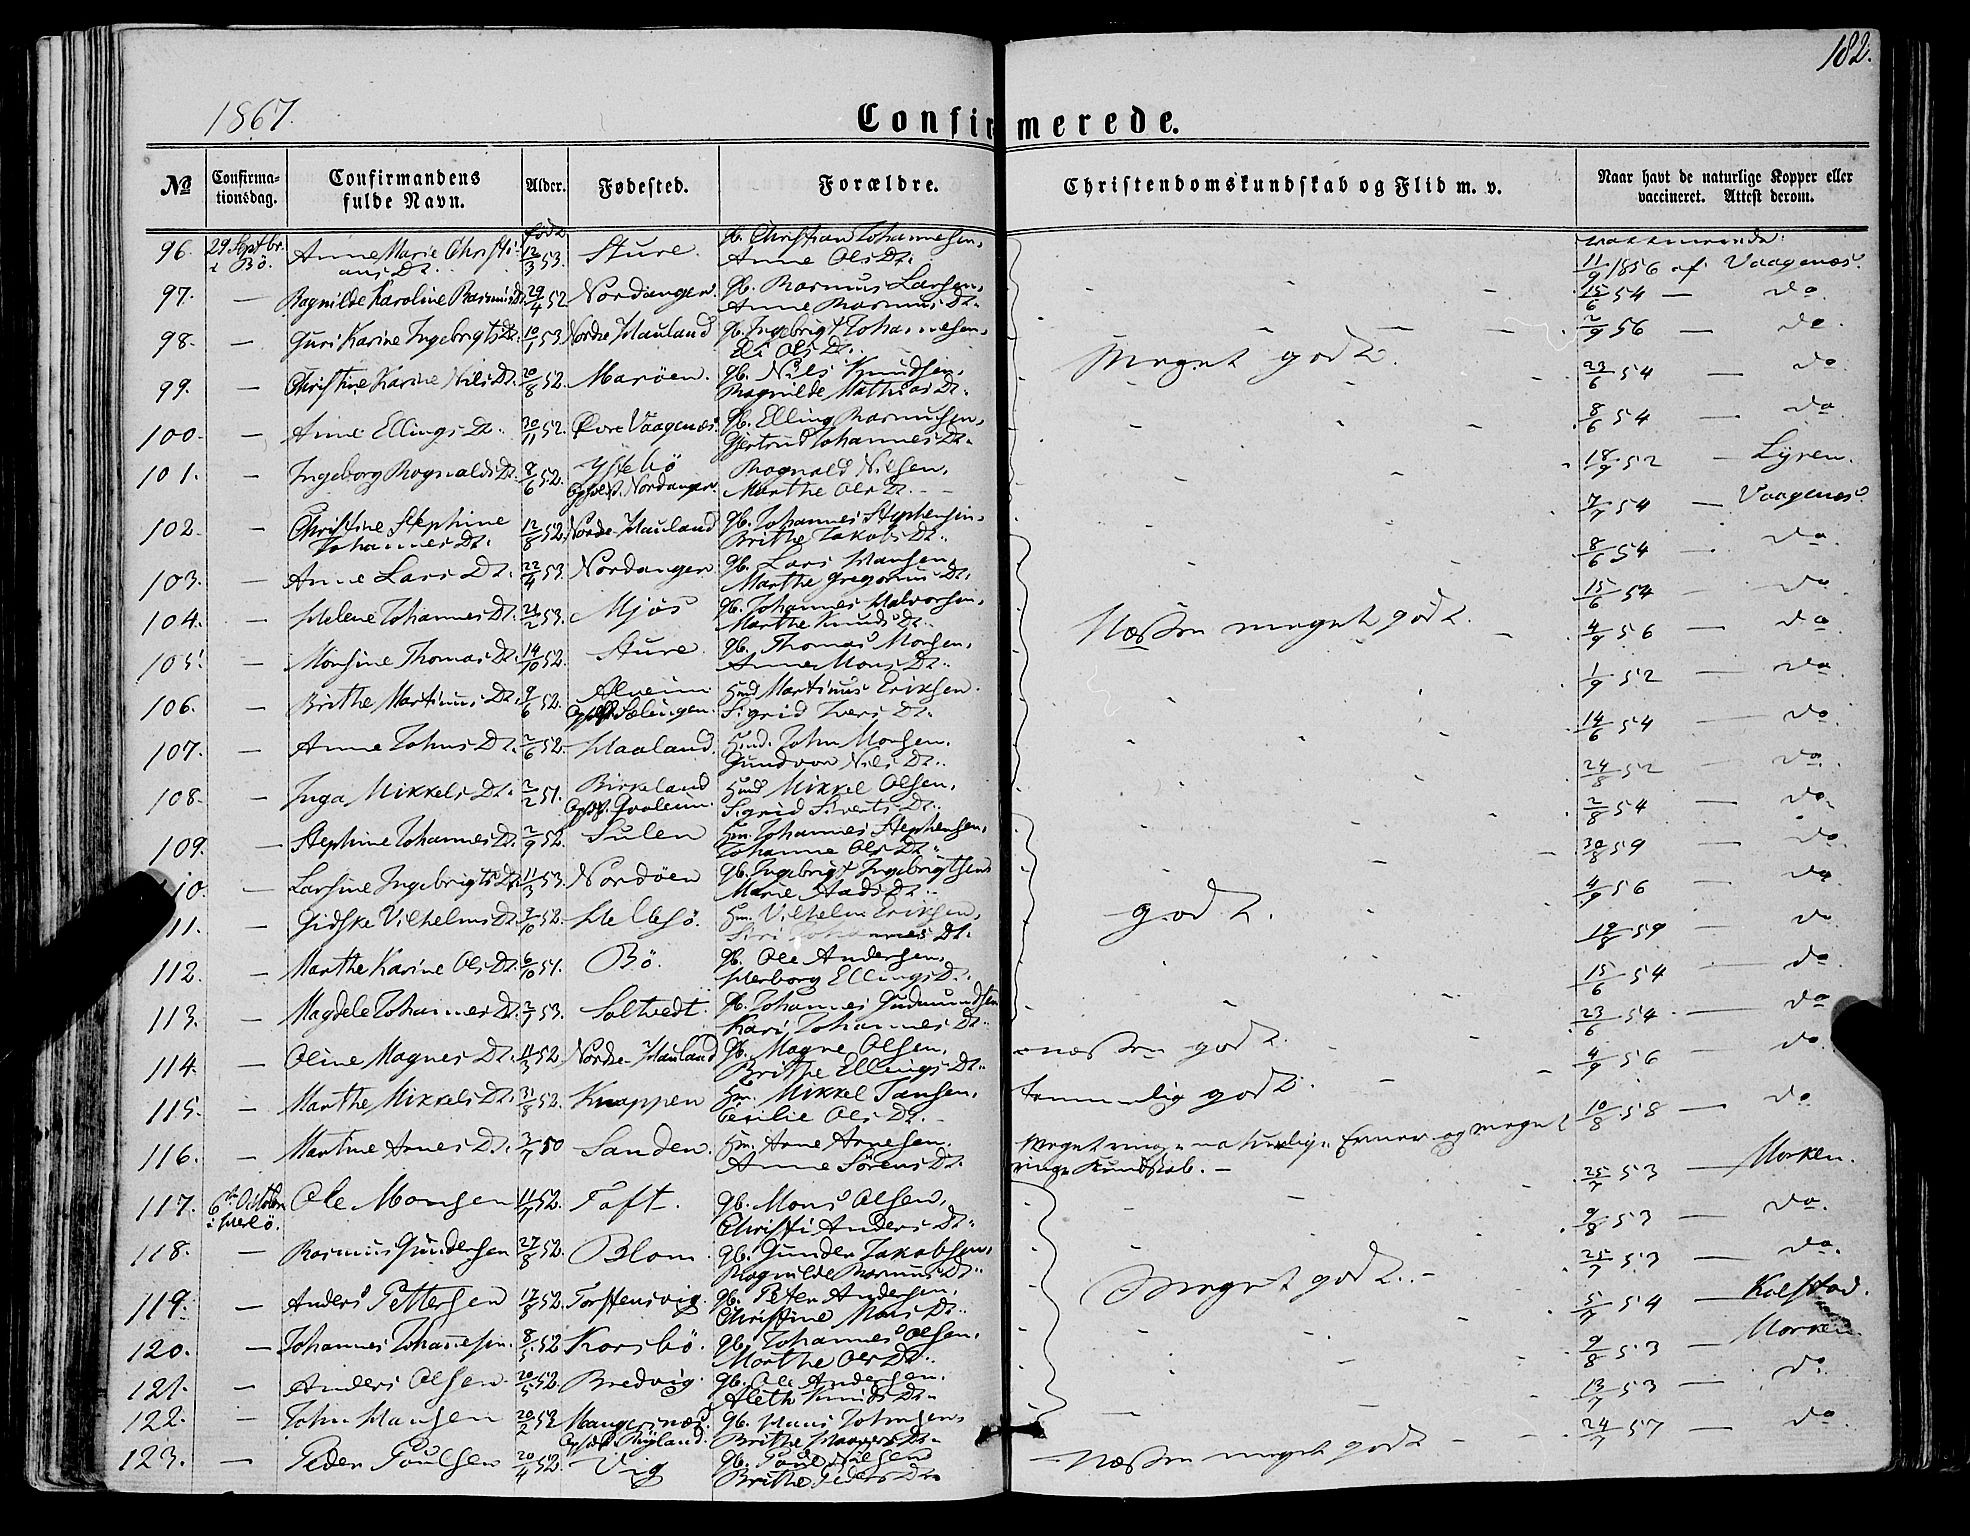 182.
1867.
Confirmerede.
No Confirmationsdag. Confirmandens fulde Navn. Alder. Fødested. Forældre. Christendomskundskab og Flid m. v. Naar havt de naturlige Kopper eller vaccineret. Attest derom.
96. 29 Septbr. i Bö. Anne Marie Christians Dt. född 12/3 53. Sture. Gb. Christian Johannesen, Anne Ols Dt. vaccinerede 11/9 1856 af Vaagenes.
97. — Ragnilde Karoline Rasmus Dt. 29/4 52 Nordanger. Gb. Rasmus Larsen, Anne Rasmus Dt. 15/6 54 — do.
98. — Guri Karine Ingebrigts Dt. 10/1 53 Nordre Hauland Gb. Ingebrigt Johannesen, Eli Ols Dt. Meget godt. 2/9 56 — do.
99. — Christine Karine Nils Dt. 20/8 52. Maröen. Gb. Nils Knudsen, Ragnilde Mathias Dt. 23/6 54 — do
100. — Anne Ellings Dt. 30/11 52. Övre Vaagenes. Gb. Elling Rasmusen, Gjertrud Johannes Dt. 8/6 54 — do
101. — Ingeborg Rognalds Dt. 8/6 52. Ystebö Opfost. Nordanger. Rognald Nilsen, Marthe Ols Dt. 18/9 52 — Lyren.
102. — Christine Stephine Johannes Dt. 12/8 52. Nordre Hauland Gb. Johannes Stephensen, Brithe Jakobs Dt. 7/7 54 — Vaagenes.
103. — Anne Lars Dt. 22/4 53. Nordanger Gb. Lars Hansen, Marthe Gregorius Dt. 8/6 54 — do.
104. — Helene Johannes Dt. 21/2 53. Mjös Gb. Johannes Halvorsen, Marthe Knuds Dt. Næsten meget godt. 15/6 54 — do
105. — Monsine Thomas Dt. 14/10 52. Sture. Gb. Thomas Monsen, Anne Mons Dt. 4/9 56 — do
106. — Brithe Martinus Dt. 9/6 52. Alveim Opfost. Sælingen. Hmd Martinus Eriksen. Sigrid Ivers Dt. 1/9 52 — do
107. — Anne Johns Dt. 2/6 52. Haaland. Hmd. John Monsen. Gundvor Nils Dt. 14/6 54 — do.
108. — Inga Mikkels Dt. 2/2 51. Birkeland Opfost. Hmd Mikkel Olsen, Sigrid Siverts Dt. 24/8 52 — do.
109. — Stephine Johannes Dt. 2/9 52. Sulen Hm. Johannes Stephensen, Johanne Ols Dt. 2/8 54 — do.
10. — Larsine Ingebrigts Dt. 11/3 53. Nordöen Gb. Ingebrigt Ingebrigtsen Marie Aads Dt. 30/8 59 — do
11. — Gidske Vilhelms Dt. 7/10 52. Hellesö. Hm. Vilhelm Eriksen, Siri Johannes Dt. godt. 4/9 56 — do
112. — Marthe Karine Ols Dt. 6/10 51. Bö. Gb. Ole Andersen, Herborg Ellings Dt. 19/8 59 — do
113. — Magdele Johannes Dt. 2/7 53. Soltvedt. Gb. Johannes Gudmundsen Kari Johannes Dt. 15/6 54 — do
114. — Oline Magnes Dt. 11/3 52. Nordre Hauland Gb. Magne Olsen, Brithe Ellings Dt. næsten godt. 23/6 54. — do
115. — Marthe Mikkels Dt. 31/8 52. Knappen Hm. Mikkel Jansen, Cecilie Ols Dt. temmelig godt. 4/9 56 — do.
116. — Martine Arnes Dt. 3/7 50 Sanden. Hm. Arne Arnesen. Anne Sörens Dt. Meget ringe naturlige Evner og meget ringe Kundskab. — 10/8 58 — do
117. 6te October i Herlö. Ole Monsen 11/7 52. Toft. Gb. Mons Olsen, Christi Anders Dt. 25/7 53 — Morken.
118. — Rasmus Gundersen 27/8 52. Blom. Gb. Gunder Jakobsen, Ragnilde Rasmus Dt. 9/8 53 — do.
119. — Anders Pettersen 17/8 52. Torstensvig. Gb. Peter Andersen, Christine Mons Dt. Meget godt. — 25/7 53 — do.
120. — Johannes Johannesen. 8/5 52 Korsbö. Gb. Johannes Olsen, Marthe Ols Dt. 5/7 54 — Kolstad.
121. — Anders Olsen. 20/5 52 Bredvig. Gb. Ole Andersen. Aleth Knuds Dt. 9/8 53 — Morken.
122. — John Hansen 20/2 52 Mangersnes. Opfost. Röyland. Gb. Hans Johnsen, Brithe Dt. 13/7 53 — do.
123. — Peder Poulsen 20/4 52. Vig Gb. Poul Nilsen Brithe Peders Dt. Næsten meget godt — 24/7 57 — do